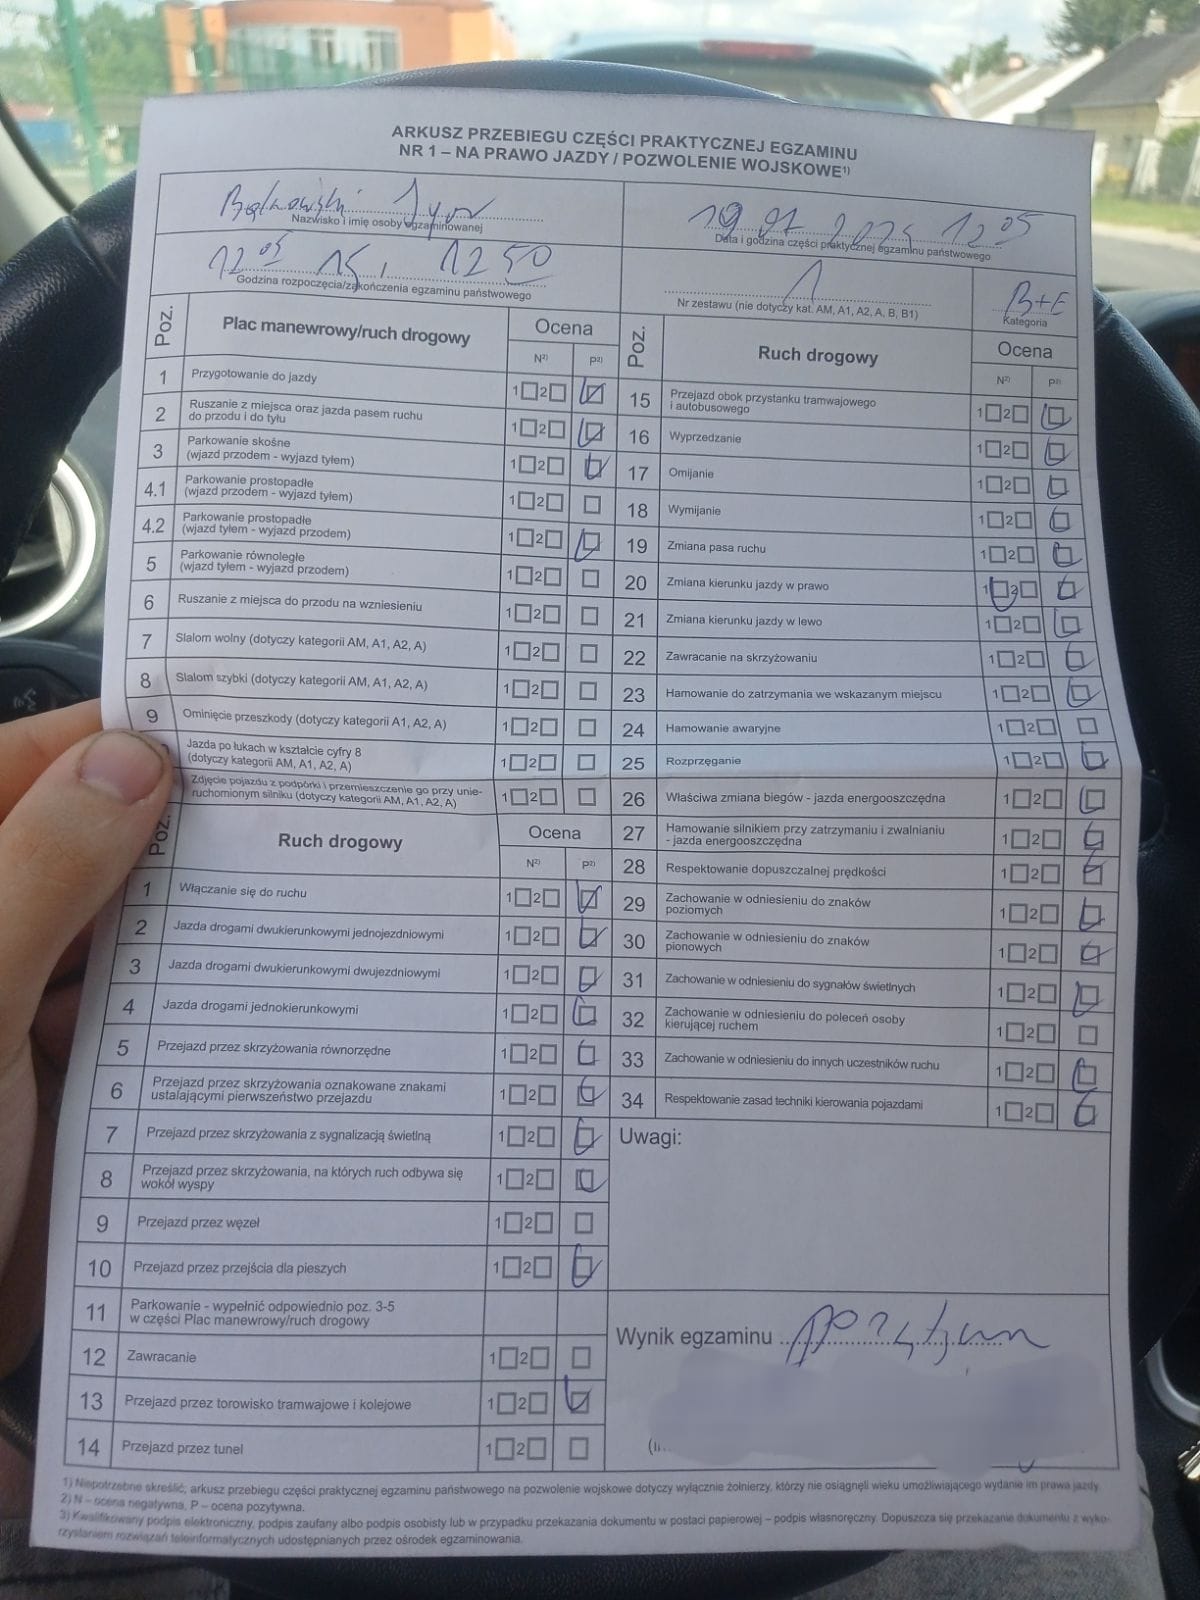 ARKUSZ PRZEBIEGU CZĘŚCI PRAKTYCZNEJ EGZAMINU
NR 1 – NA PRAWO JAZDY / POZWOLENIE WOJSKOWE¹⁾
Nazwisko i imię osoby egzaminowanej
12 05
Data i godzina części praktycznej egzaminu państwowego
12 05 12 50
Godzina rozpoczęcia/zakończenia egzaminu państwowego
1
Nr zestawu (nie dotyczy kat. AM, A1, A2, A, B, B1)
B+E
Kategoria
Poz.
Plac manewrowy/ruch drogowy
Ocena
N²⁾ P²⁾
1 Przygotowanie do jazdy 1 2
2 Ruszanie z miejsca oraz jazda pasem ruchu
do przodu i do tyłu 1 2
3 Parkowanie skośne
(wjazd przodem - wyjazd tyłem) 1 2
4.1 Parkowanie prostopadłe
(wjazd przodem - wyjazd tyłem) 1 2
4.2 Parkowanie prostopadłe
(wjazd tyłem - wyjazd przodem) 1 2
5 Parkowanie równoległe
(wjazd tyłem - wyjazd przodem) 1 2
6 Ruszanie z miejsca do przodu na wzniesieniu 1 2
7 Slalom wolny (dotyczy kategorii AM, A1, A2, A) 1 2
8 Slalom szybki (dotyczy kategorii AM, A1, A2, A) 1 2
9 Ominięcie przeszkody (dotyczy kategorii A1, A2, A) 1 2
Jazda po łukach w kształcie cyfry 8
(dotyczy kategorii AM, A1, A2, A) 1 2
Zdjęcie pojazdu z podpórki i przemieszczenie go przy unie-
ruchomionym silniku (dotyczy kategorii AM, A1, A2, A) 1 2
Poz.
Ruch drogowy
Ocena
N²⁾ P²⁾
1 Włączanie się do ruchu 1 2
2 Jazda drogami dwukierunkowymi jednojezdniowymi 1 2
3 Jazda drogami dwukierunkowymi dwujezdniowymi 1 2
4 Jazda drogami jednokierunkowymi 1 2
5 Przejazd przez skrzyżowania równorzędne 1 2
6 Przejazd przez skrzyżowania oznakowane znakami
ustalającymi pierwszeństwo przejazdu 1 2
7 Przejazd przez skrzyżowania z sygnalizacją świetlną 1 2
8 Przejazd przez skrzyżowania, na których ruch odbywa się
wokół wyspy 1 2
9 Przejazd przez węzeł 1 2
10 Przejazd przez przejścia dla pieszych 1 2
11 Parkowanie - wypełnić odpowiednio poz. 3-5
w części Plac manewrowy/ruch drogowy
12 Zawracanie 1 2
13 Przejazd przez torowisko tramwajowe i kolejowe 1 2
14 Przejazd przez tunel 1 2
Poz.
Ruch drogowy
Ocena
N²⁾ P²⁾
15 Przejazd obok przystanku tramwajowego
i autobusowego 1 2
16 Wyprzedzanie 1 2
17 Omijanie 1 2
18 Wymijanie 1 2
19 Zmiana pasa ruchu 1 2
20 Zmiana kierunku jazdy w prawo 1 2
21 Zmiana kierunku jazdy w lewo 1 2
22 Zawracanie na skrzyżowaniu 1 2
23 Hamowanie do zatrzymania we wskazanym miejscu 1 2
24 Hamowanie awaryjne 1 2
25 Rozprzęganie 1 2
26 Właściwa zmiana biegów - jazda energooszczędna 1 2
27 Hamowanie silnikiem przy zatrzymaniu i zwalnianiu
- jazda energooszczędna 1 2
28 Respektowanie dopuszczalnej prędkości 1 2
29 Zachowanie w odniesieniu do znaków
poziomych 1 2
30 Zachowanie w odniesieniu do znaków
pionowych 1 2
31 Zachowanie w odniesieniu do sygnałów świetlnych 1 2
32 Zachowanie w odniesieniu do poleceń osoby
kierującej ruchem 1 2
33 Zachowanie w odniesieniu do innych uczestników ruchu 1 2
34 Respektowanie zasad techniki kierowania pojazdami 1 2
Uwagi:
Wynik egzaminu pozytywn
1) Niepotrzebne skreślić; arkusz przebiegu części praktycznej egzaminu państwowego na pozwolenie wojskowe dotyczy wyłącznie żołnierzy, którzy nie osiągnęli wieku umożliwiającego wydanie im prawa jazdy.
2) N – ocena negatywna, P – ocena pozytywna.
3) Kwalifikowany podpis elektroniczny, podpis zaufany albo podpis osobisty lub w przypadku przekazania dokumentu w postaci papierowej – podpis własnoręczny. Dopuszcza się przekazanie dokumentu z wyko-
rzystaniem rozwiązań teleinformatycznych udostępnianych przez ośrodek egzaminowania.